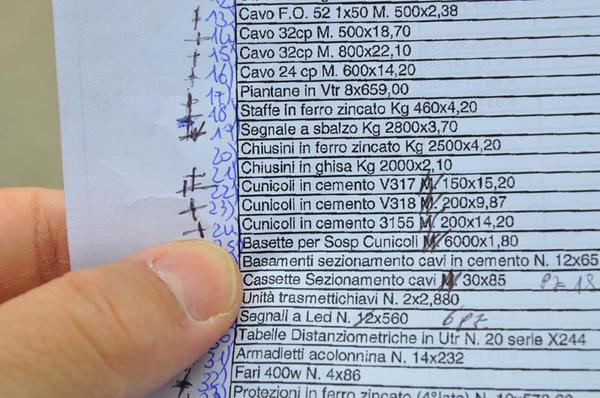 13) Cavo F.O. 52 1x50 M. 500x2,38
14) Cavo 32cp M. 500x18,70
15) Cavo 32cp M. 800x22,10
16) Cavo 24 cp M. 600x14,20
17) Piantane in Vtr 8x659,00
18) Staffe in ferro zincato Kg 460x4,20
19 Segnale a sbalzo Kg 2800x3,70
20) Chiusini in ferro zincato Kg 2500x4,20
21) Chiusini in ghisa Kg 2000x2,10
22) Cunicoli in cemento V317 M. 150x15,20
23) Cunicoli in cemento V318 M. 200x9,87
24 Cunicoli in cemento 3155 M. 200x14,20
25) Basette per Sosp Cunicoli M. 6000x1,80
Basamenti sezionamento cavi in cemento N. 12x65
Cassette Sezionamento cavi M. 30x85 Pz 18
Unità trasmettichiavi N. 2x2,880
Segnali a Led N. 12x560 6 pz
Tabelle Distanziometriche in Utr N. 20 serie X244
Armadietti acolonnina N. 14x232
Fari 400w N. 4x86
Protezioni in ferro zincato